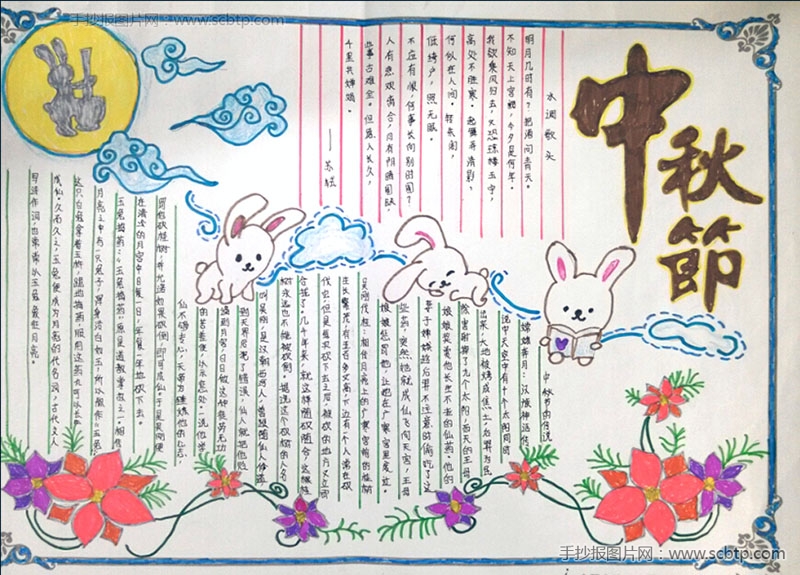 手抄报图片网：www.scbtp.com
中秋節
水调歌头
明月几时有？把酒问青天。
不知天上宫阙，今夕是何年。
我欲乘风归去，又恐琼楼玉宇，
高处不胜寒。起舞弄清影，
何似在人间。转朱阁，
低绮户，照无眠。
不应有恨，何事长向别时圆？
人有悲欢离合，月有阴晴圆缺，
此事古难全。但愿人长久，
千里共婵娟。
——苏轼
中秋节的传说
嫦娥奔月：汉族神话传
说中天空中有十个太阳同时
出来，大地被烤成焦土，后羿为民
除害射掉了九个太阳，西天的王母
娘娘奖赏他长生不老的仙药。他的
妻子嫦娥趁后羿不注意时偷吃了这
些药，突然她就成仙飞向天宫，王母
娘娘惩罚她，让她在广寒宫里度过。
吴刚伐桂：相传月亮上的广寒宫前的桂树
生长繁茂，有五百多丈高，下边有一个人常在砍
伐它，但是每次砍下去之后，被砍的地方又立即
合拢了。几千年来，就这样随砍随合，这棵桂
树永远也不能被砍倒。据说这个砍树的人名
叫吴刚，是汉朝西河人，曾跟随仙人修道，
到天界后犯了错误，仙人就把他贬
谪到月宫，日日做这种徒劳无功
的苦差使，以示惩处。一说他学
仙不够专心，天帝为锤炼他的心志，
罚他砍桂树，并允诺如果砍倒，即可成仙。于是吴刚便
在清冷的月宫中日复一日，年复一年地砍下去。
玉兔捣药：玉兔捣药原是道教掌故之一，相传
月亮之中有一只兔子，浑身洁白如玉，所以称作“玉兔”
这只白兔拿着玉杵，跪地捣药，服用这药丸可以长生
成仙。久而久之，玉兔便成为月亮的代名词，古代文人
写诗作词，也常常以玉兔象征月亮。
手抄报图片网：www.scbtp.com